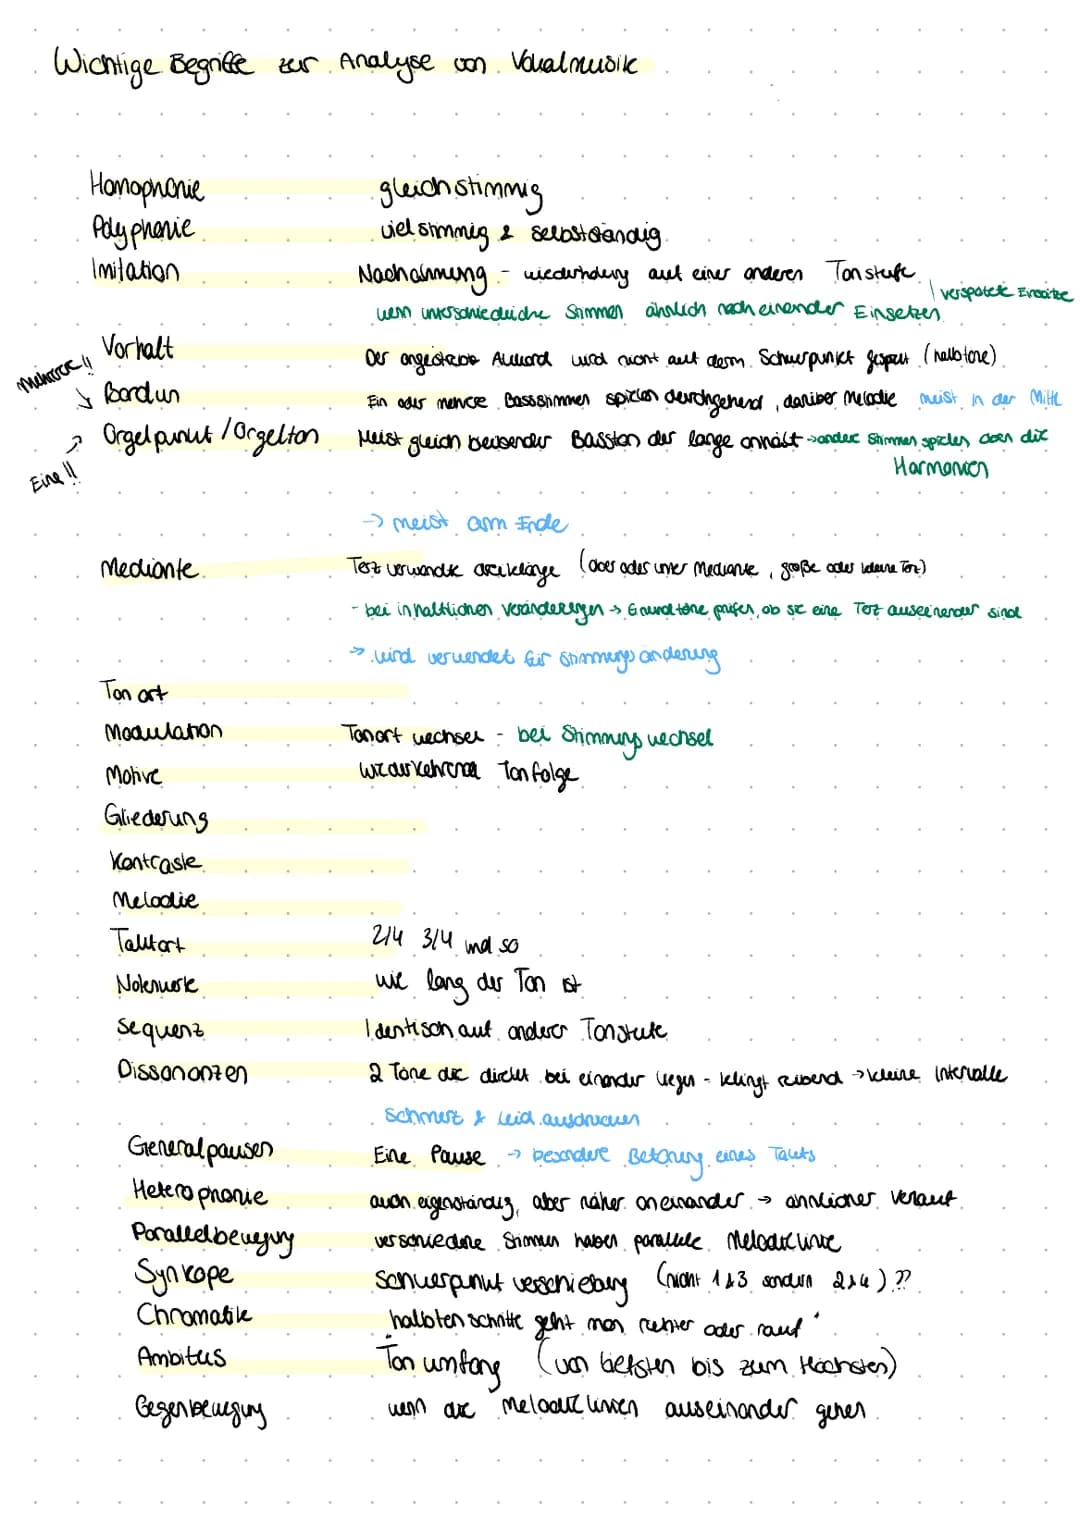 Wichtige Begriffe zur Analyse von Vokalmusik
Homophonie gleichstimmig
Polyphonie vielstimmig & selbstständig
Imitation Nachahmung - wiederholung auf einer anderen Tonstufe
wenn unterschiedliche Stimmen ähnlich nacheinander Einsetzen / verspätete Einsätze
Vorhalt Der angestrebte Akkord wird nicht auf dem Schwerpunkt gespielt (halbtöne)
Mehrere !!
Bordun Ein oder mehrere Bassstimmen spielen durchgehend, darüber Melodie meist in der Mitte
Orgelpunkt / Orgelton Meist gleich bleibender Basston der lange anhält → andere Stimmen spielen dann die
Harmonien
Eine !!
→ meist am Ende
Mediante Terz verwandte dreiklänge (ober oder unter Mediante, große oder kleine Terz)
- bei inhaltlichen Veränderungen → Grundtöne prüfen, ob sie eine Terz auseinander sind
→ wird verwendet für Stimmungsänderung
Tonart
Modulation Tonart wechsel - bei Stimmungswechsel
Motive wiederkehrende Tonfolge
Gliederung
Kontraste
Melodie
Taktart 2/4 3/4 und so
Notenwerte wie lang der Ton ist
Sequenz Identisch auf anderer Tonstufe
Dissonanzen 2 Töne die direkt bei einander liegen - klingt reibend → kleine Intervalle
Schmerz & Leid ausdrücken
Generalpausen Eine Pause → besondere Betonung eines Takts
Heterophonie auch eigenständig, aber näher aneinander → ähnlicher Verlauf
Parallelbewegung verschiedene Stimmen haben parallele Melodielinie
Synkope Schwerpunkt verschiebung (nicht 1&3 sondern 2&4) ??
Chromatik halbtonschritte geht man runter oder rauf
Ambitus Ton umfang (von tiefsten bis zum Höchsten)
Gegenbewegung wenn die Melodielinien auseinander gehen